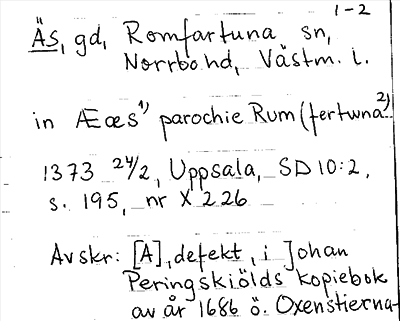 1-2
Äs, gd, Romfartuna sn,
Norrbo hd, Västm. l.
in Æœs¹⁾ parochie Rum(fertwna²⁾..
1373 24/2, Uppsala, SD 10:2,
s. 195, nr X 226
Avskr: [A], defekt, i Johan
Peringskiölds kopiebok
av år 1686 ö. Oxenstierna-